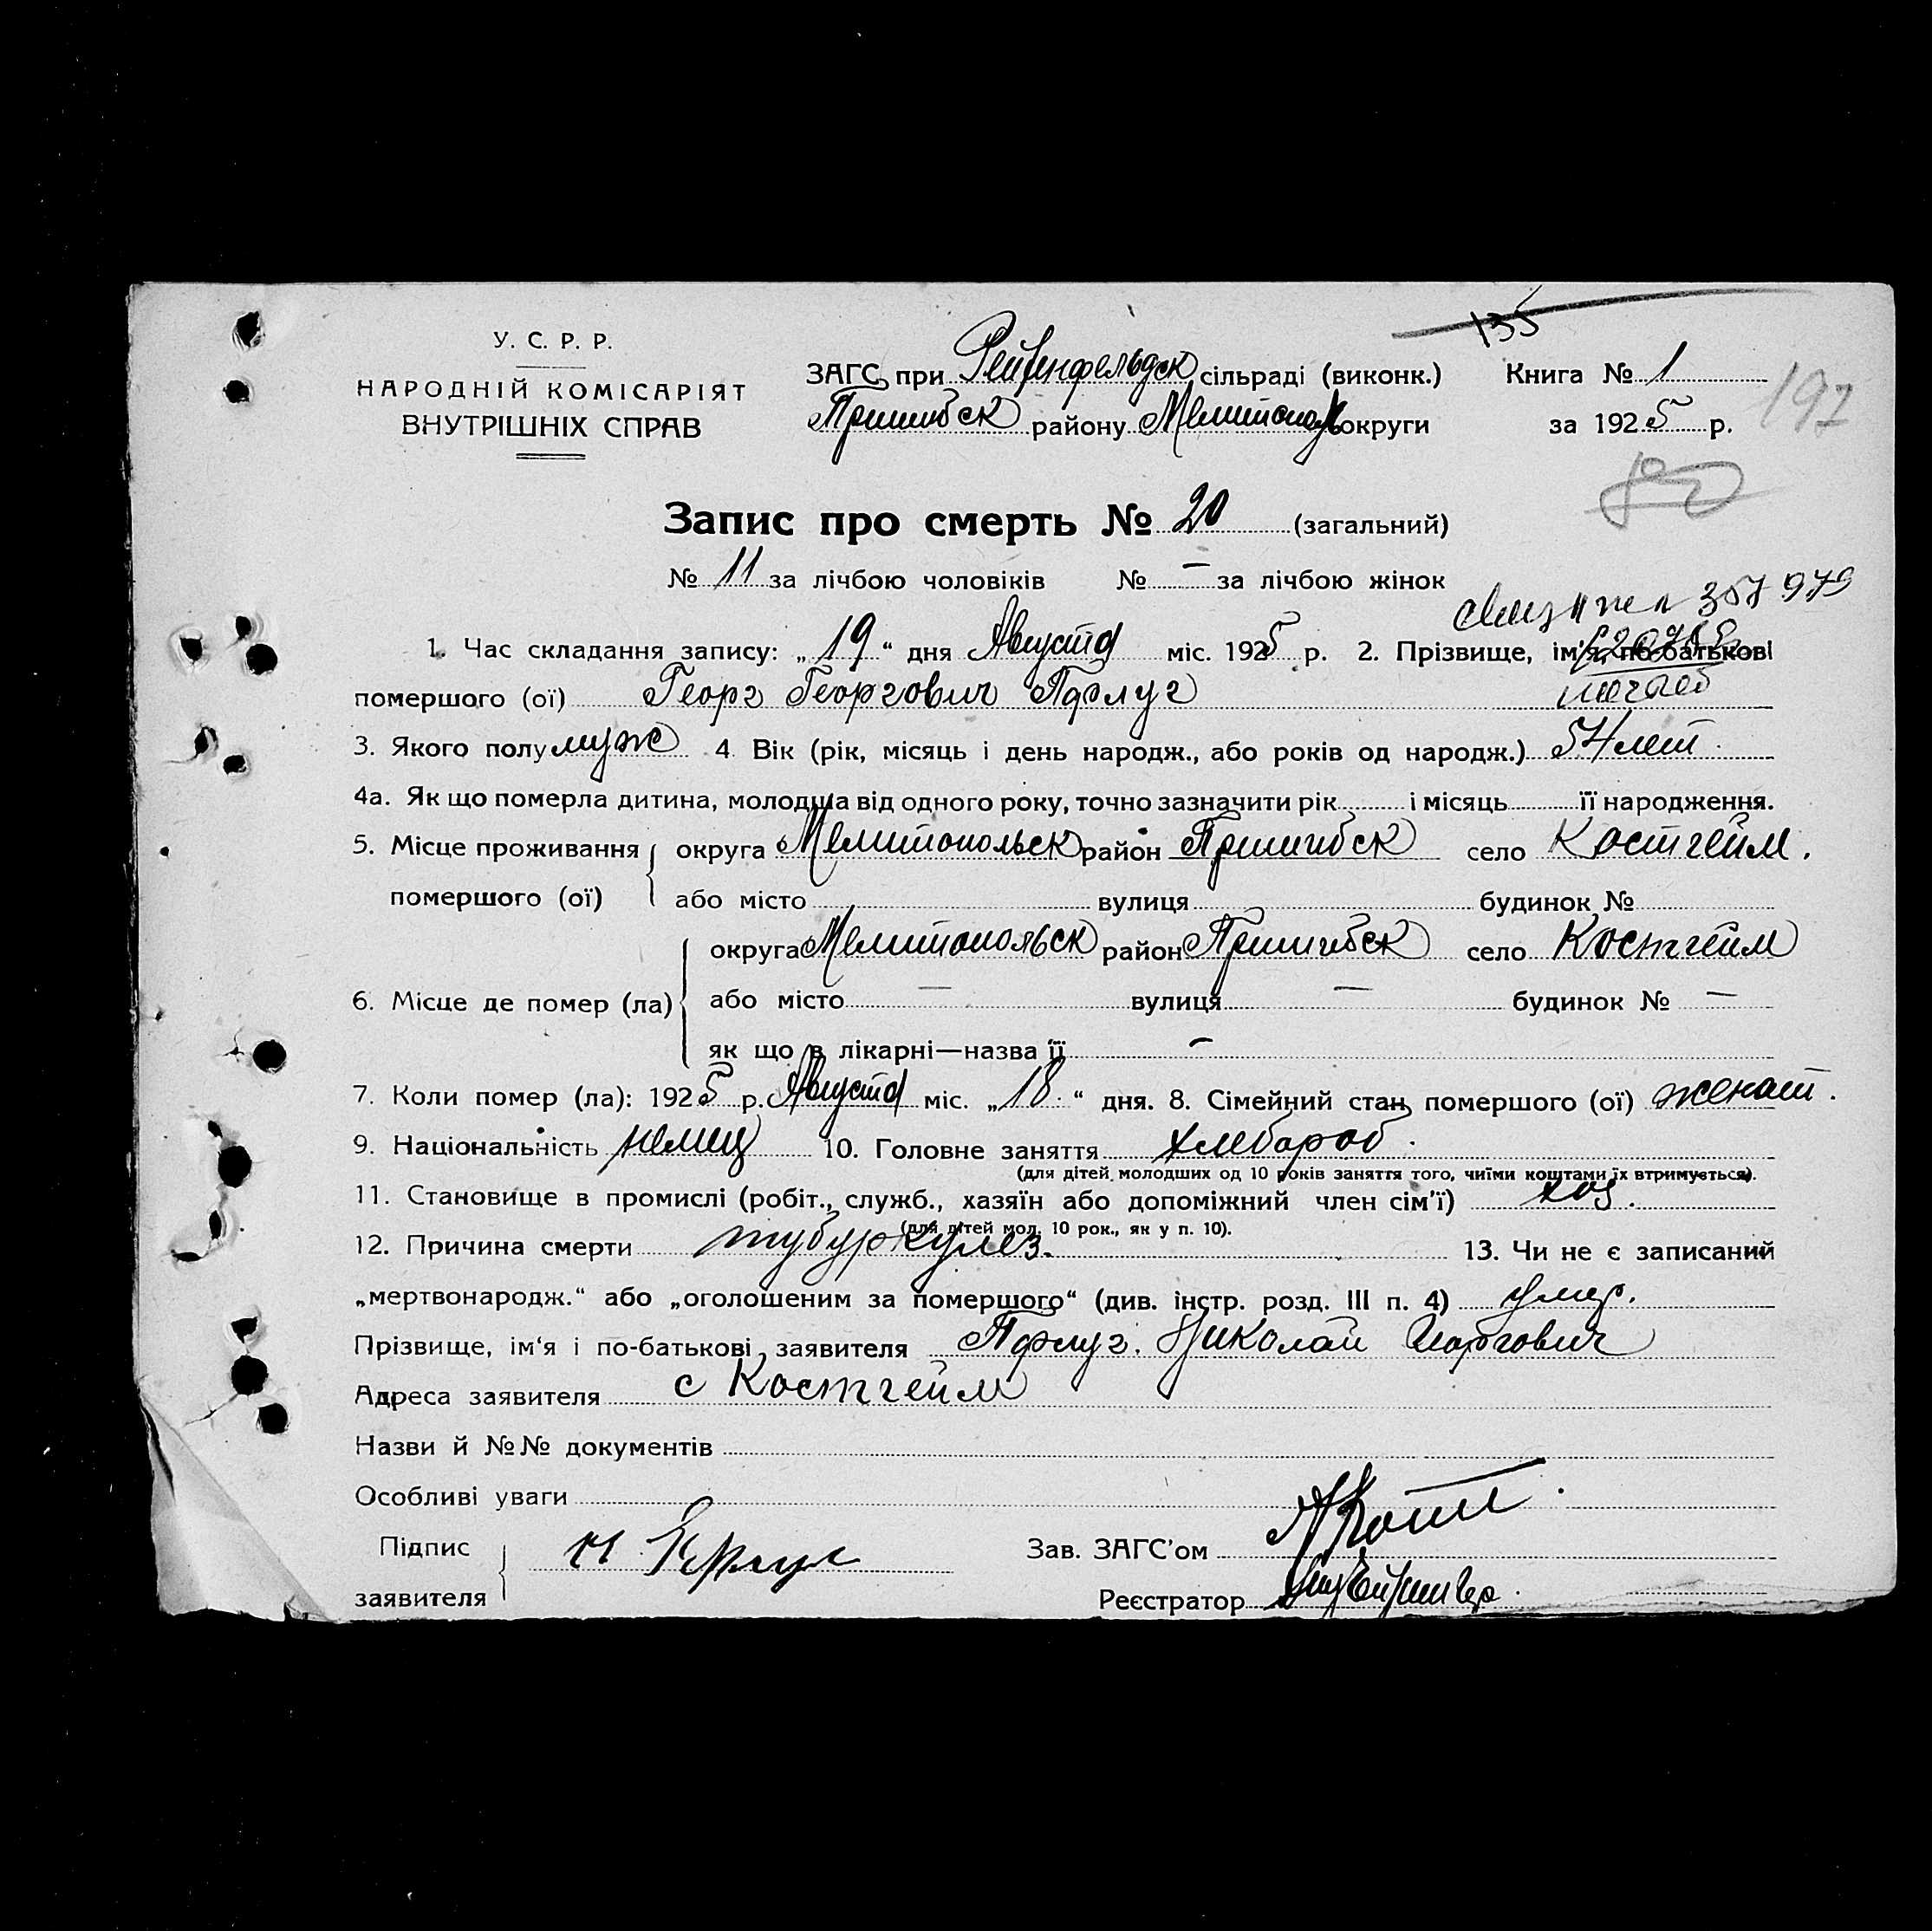 135
У. С. Р. Р.
НАРОДНІЙ КОМІСАРІЯТ
ВНУТРІШНІХ СПРАВ
ЗАГС при Рейхенфельдск сільраді (виконк.) Книга № 1
Пришибск району Мелитопол округи за 1925 р. 197
Запис про смерть № 20 (загальний)
№ 11 за лічбою чоловіків № — за лічбою жінок
357979
1. Час складання запису: „19“ дня Августа міс. 1925 р. 2. Прізвище, ім'я, по-батькові
помершого (ої) Георг Георгович Пфлуг
3. Якого полу муж 4. Вік (рік, місяць і день народж., або років од народж.) 54 лет.
4а. Як що померла дитина, молодша від одного року, точно зазначити рік і місяць її народження.
5. Місце проживання округа Мелитопольск район Пришибск село Костгейм.
помершого (ої) або місто вулиця будинок №
округа Мелитопольск район Пришибск село Костгейм
6. Місце де помер (ла) або місто — вулиця — будинок № —
як що в лікарні—назва її —
7. Коли помер (ла): 1925 р. Августа міс. „18.“ дня. 8. Сімейний стан помершого (ої) женат.
9. Національність немец 10. Головне заняття хлебороб.
(для дітей молодших од 10 років заняття того, чиїми коштами їх втримується).
11. Становище в промислі (робіт., служб., хазяїн або допоміжний член сім'ї) хоз.
(для дітей мол. 10 рок., як у п. 10).
12. Причина смерти тубуркулез. 13. Чи не є записаний
„мертвонародж.“ або „оголошеним за помершого“ (див. інстр. розд. III п. 4) умер.
Прізвище, ім'я і по-батькові заявителя Пфлуг. Николай Георгович
Адреса заявителя с Костгейм
Назви й №№ документів
Особливі уваги
Підпис
заявителя
Зав. ЗАГС'ом
Реєстратор